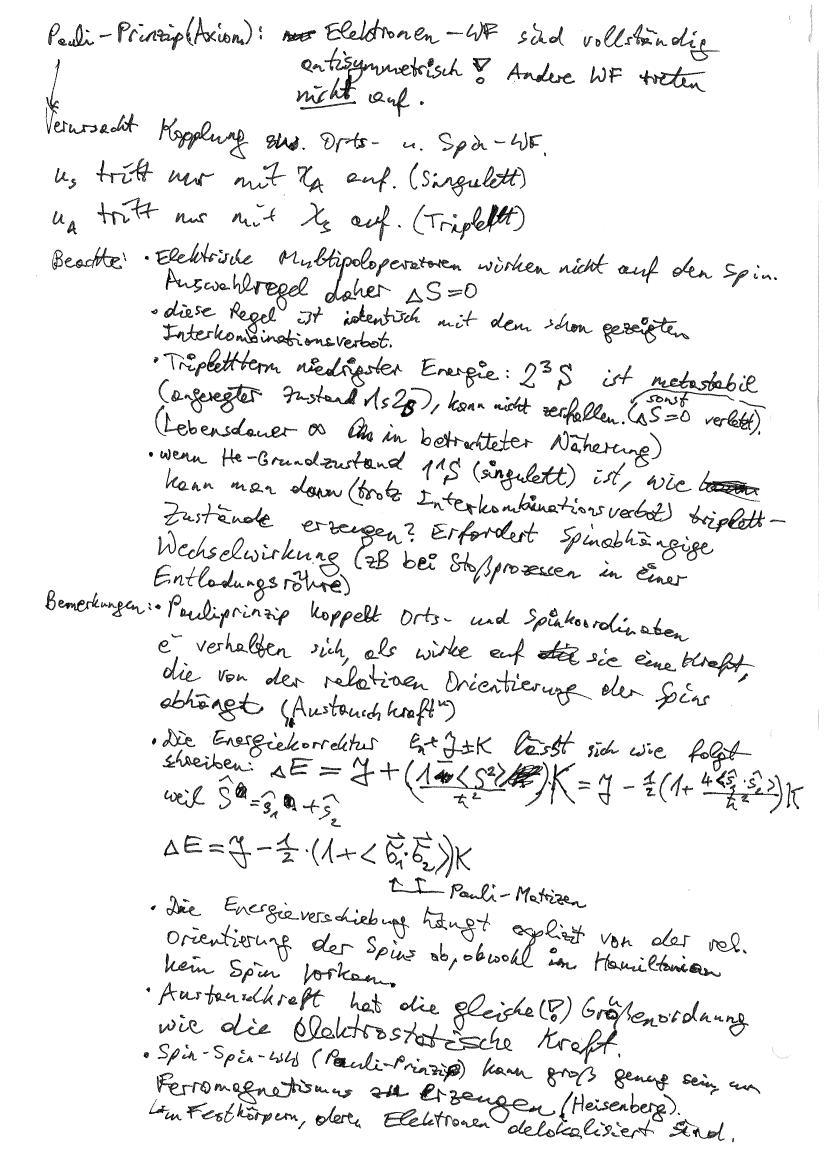 Pauli-Prinzip (Axiom): Elektronen-WF sind vollständig
antisymmetrisch! Andere WF treten
nicht auf.
Verursacht Kopplung zw. Orts- u. Spin-WF.
u_S tritt nur mit χ_A auf. (Singulett)
u_A tritt nur mit χ_S auf. (Triplett)
Beachte: • Elektrische Multipoloperatoren wirken nicht auf den Spin.
Auswahlregel daher ΔS=0
• diese Regel ist identisch mit dem schon gezeigten
Interkombinationsverbot.
• Triplettterm niedrigster Energie: 2³S ist metastabil
(angeregter Zustand 1s2s), kann nicht zerfallen. (sonst ΔS=0 verletzt).
(Lebensdauer ∞ in betrachteter Näherung)
• wenn He-Grundzustand 1¹S (singulett) ist, wie
kann man dann (trotz Interkombinationsverbot) triplett-
Zustände erzeugen? Erfordert Spinabhängige
Wechselwirkung (zB bei Stoßprozessen in einer
Entladungsröhre)
Bemerkungen: • Pauliprinzip koppelt Orts- und Spinkoordinaten
e⁻ verhalten sich, als wirke auf sie eine Kraft,
die von der relativen Orientierung der Spins
abhängt („Austauschkraft")
• Die Energiekorrektur E_n+J±K lässt sich wie folgt
schreiben: ΔE = J + (1 - <S²>/ħ²)K = J - 1/2(1 + 4<ŝ_1·ŝ_2>/ħ²)K
weil Ŝ = ŝ_1 + ŝ_2
ΔE = J - 1/2·(1+<σ⃗_1·σ⃗_2>)K
Pauli-Matrizen
• Die Energieverschiebung hängt explizit von der rel.
Orientierung der Spins ab, obwohl im Hamiltonian
kein Spin vorkam.
• Austauschkraft hat die gleiche(!) Größenordnung
wie die elektrostatische Kraft.
• Spin-Spin-WW (Pauli-Prinzip) kann groß genug sein, um
Ferromagnetismus zu erzeugen (Heisenberg).
in Festkörpern, deren Elektronen delokalisiert sind.